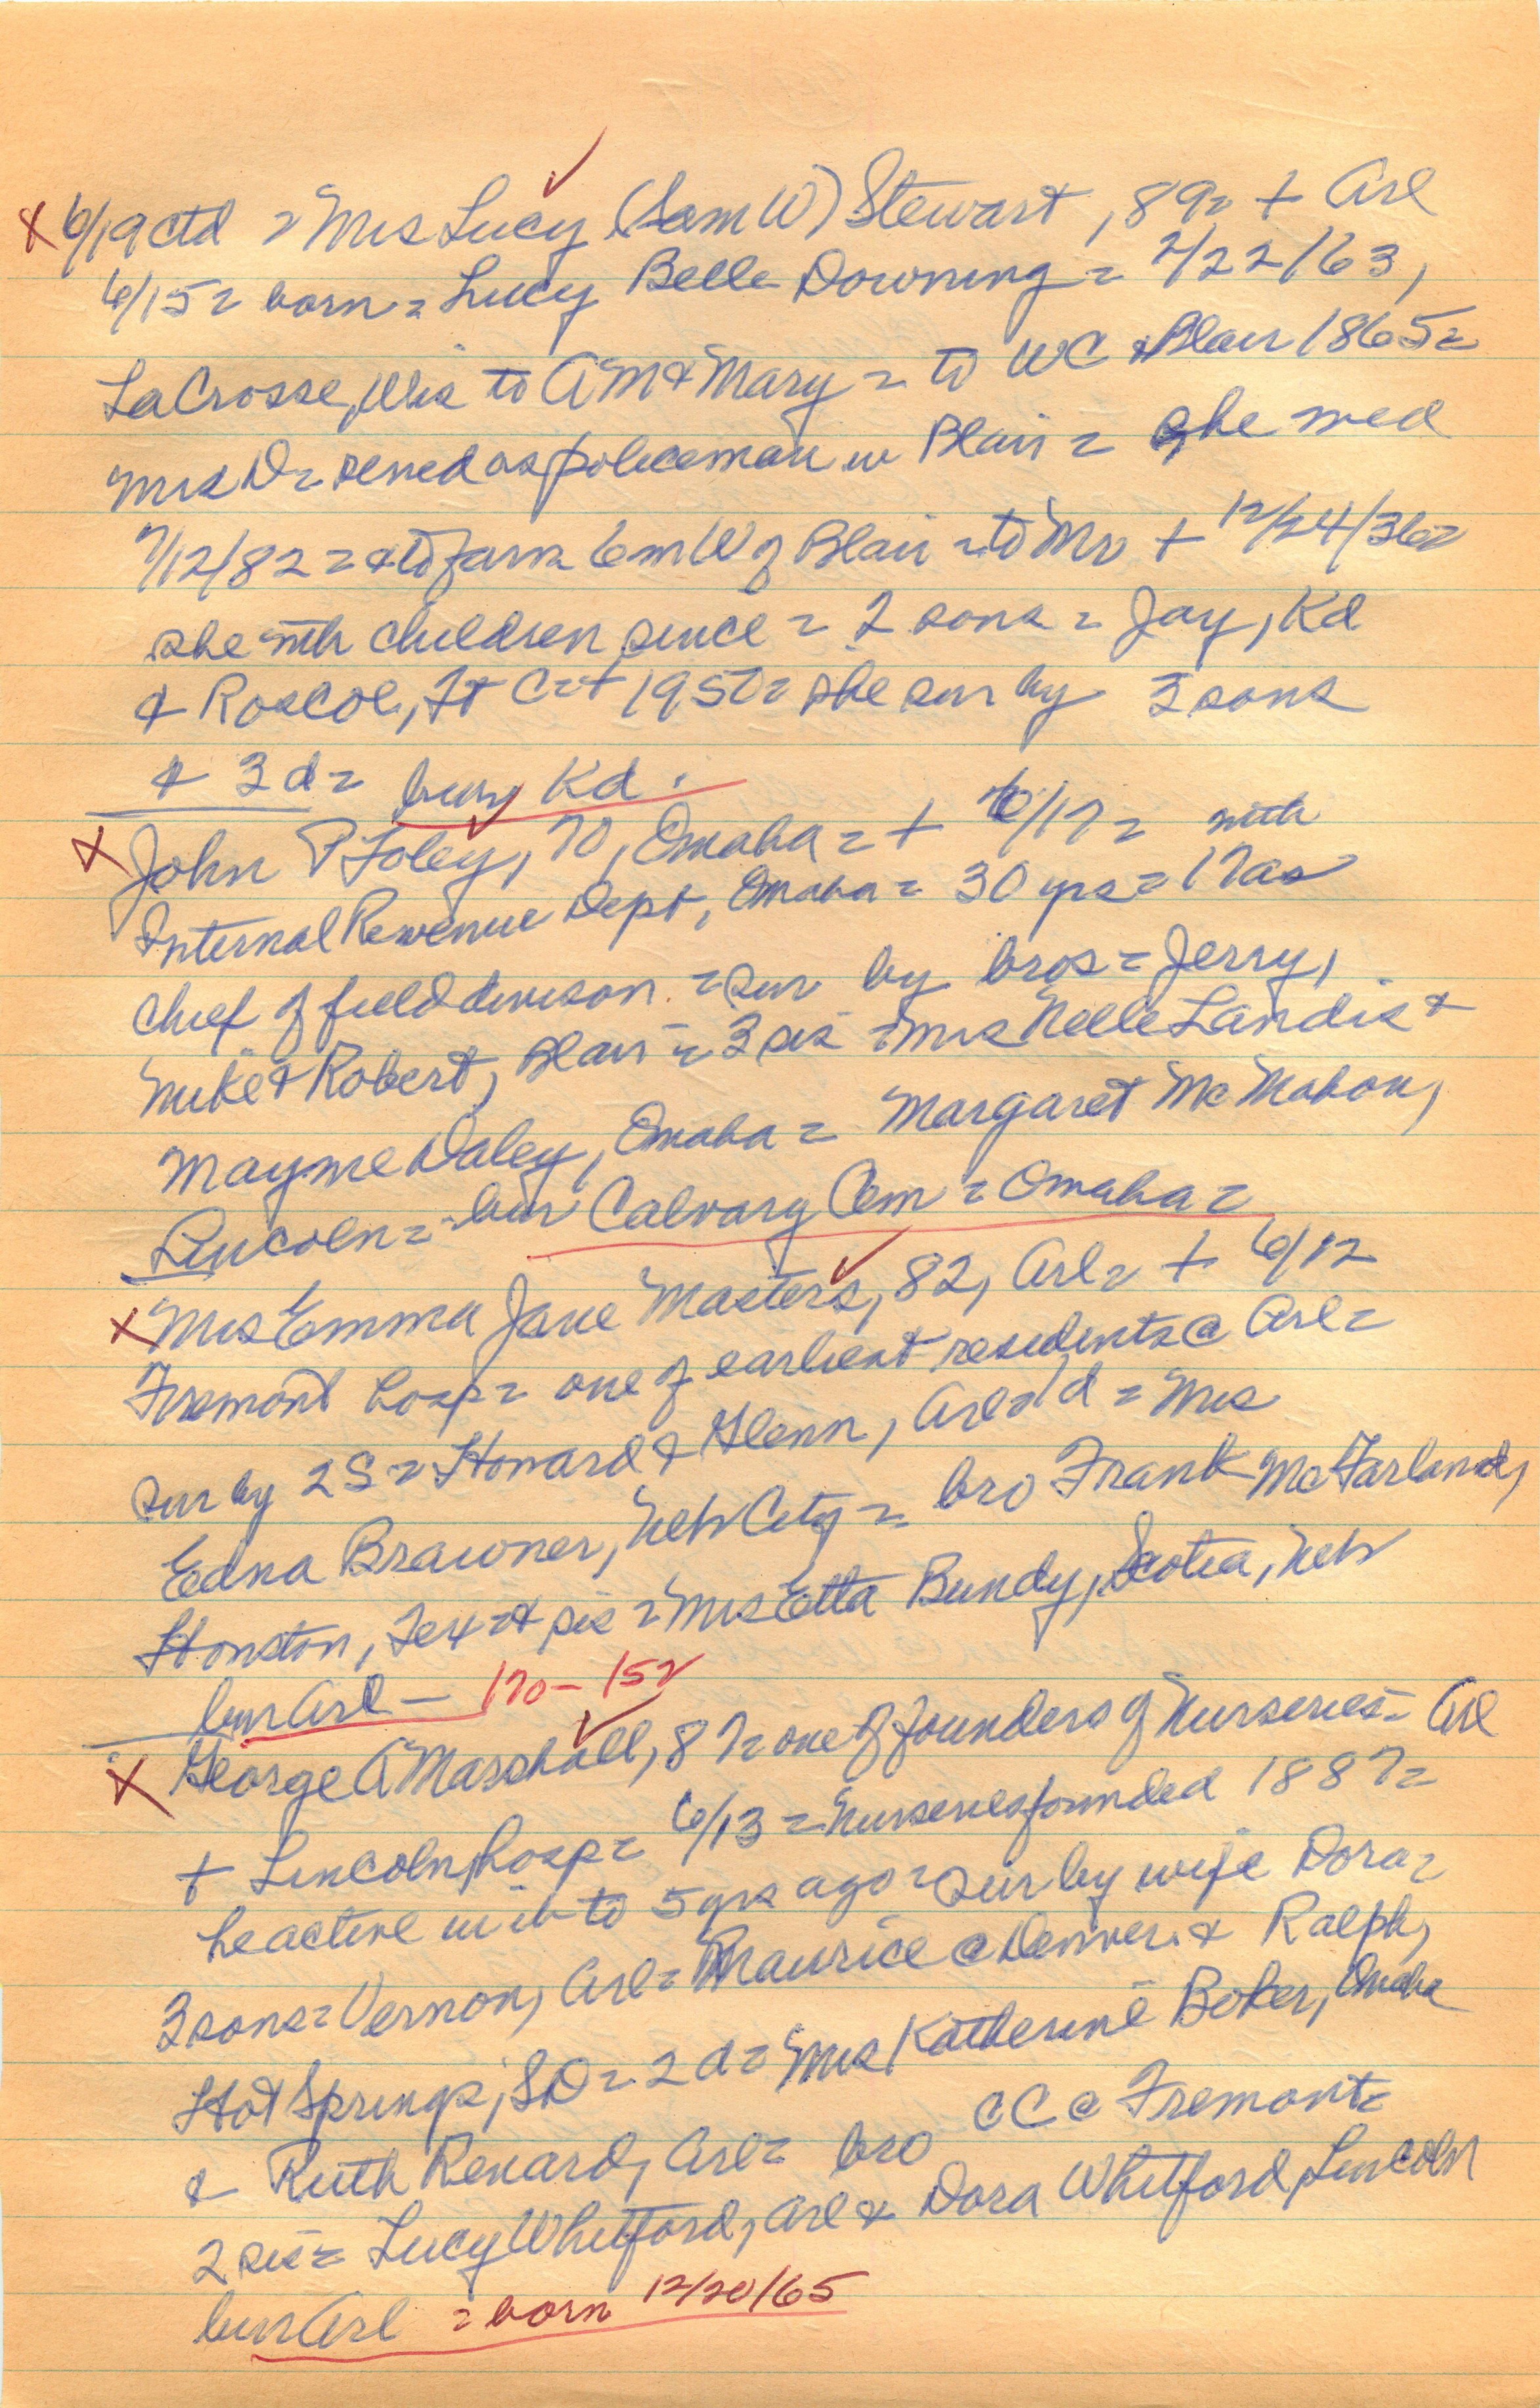 x 6/19 ctd = Mrs Lucy (Sam W) Stewart, 89 = + Arl
6/15 = born = Lucy Belle Downing = 2/22/63,
LaCrosse, Wis to A M & Mary = to WC & Blair 1865 =
Mrs D = served as policeman in Blair = she med
7/12/82 = & to farm 6 m W of Blair = to Mr + 12/24/36 =
she with children since = 2 sons = Jay, Kd
& Roscoe, Ft C = + 1950 = she sur by 3 sons
& 3 d = bury Kd.
x John P Foley, 70, Omaha = + 6/17 = with
Internal Revenue Dept, Omaha = 30 yrs = 17 as
chief of field divison = sur by bros = Jerry,
Mike & Robert, Blair = 3 sis = Mrs Nelle Landis &
Mayme Daley, Omaha = Margaret McMahon,
Lincoln = bur Calvary Cem = Omaha =
x Mrs Emma Jane Masters, 82, Arl = + 6/12
Fremont hosp = one of earliest residents @ Arl =
sur by 2 S = Howard & Glenn, Arl = 1 d = Mrs
Edna Brawner, Neb City = bro Frank McFarland,
Houston, Tex = & sis = Mrs Etta Bundy, Scotia, Neb
bur Arl — 170 - 152
x George A Marshall, 87 = one of founders of Nurseries = Arl
+ Lincoln, hosp = 6/13 = Nurseries founded 1887 =
he active in it to 5 yrs ago = sur by wife Dora =
3 sons = Vernon, Arl = Maurice @ Denver & Ralph,
Hot Springs, SD = 2 d = Mrs Katherine Boker, Omaha
& Ruth Renard, Arl = bro CC @ Fremont =
2 sis = Lucy Whitford, Arl & Dora Whitford, Lincoln
bur Arl = born 12/20/65